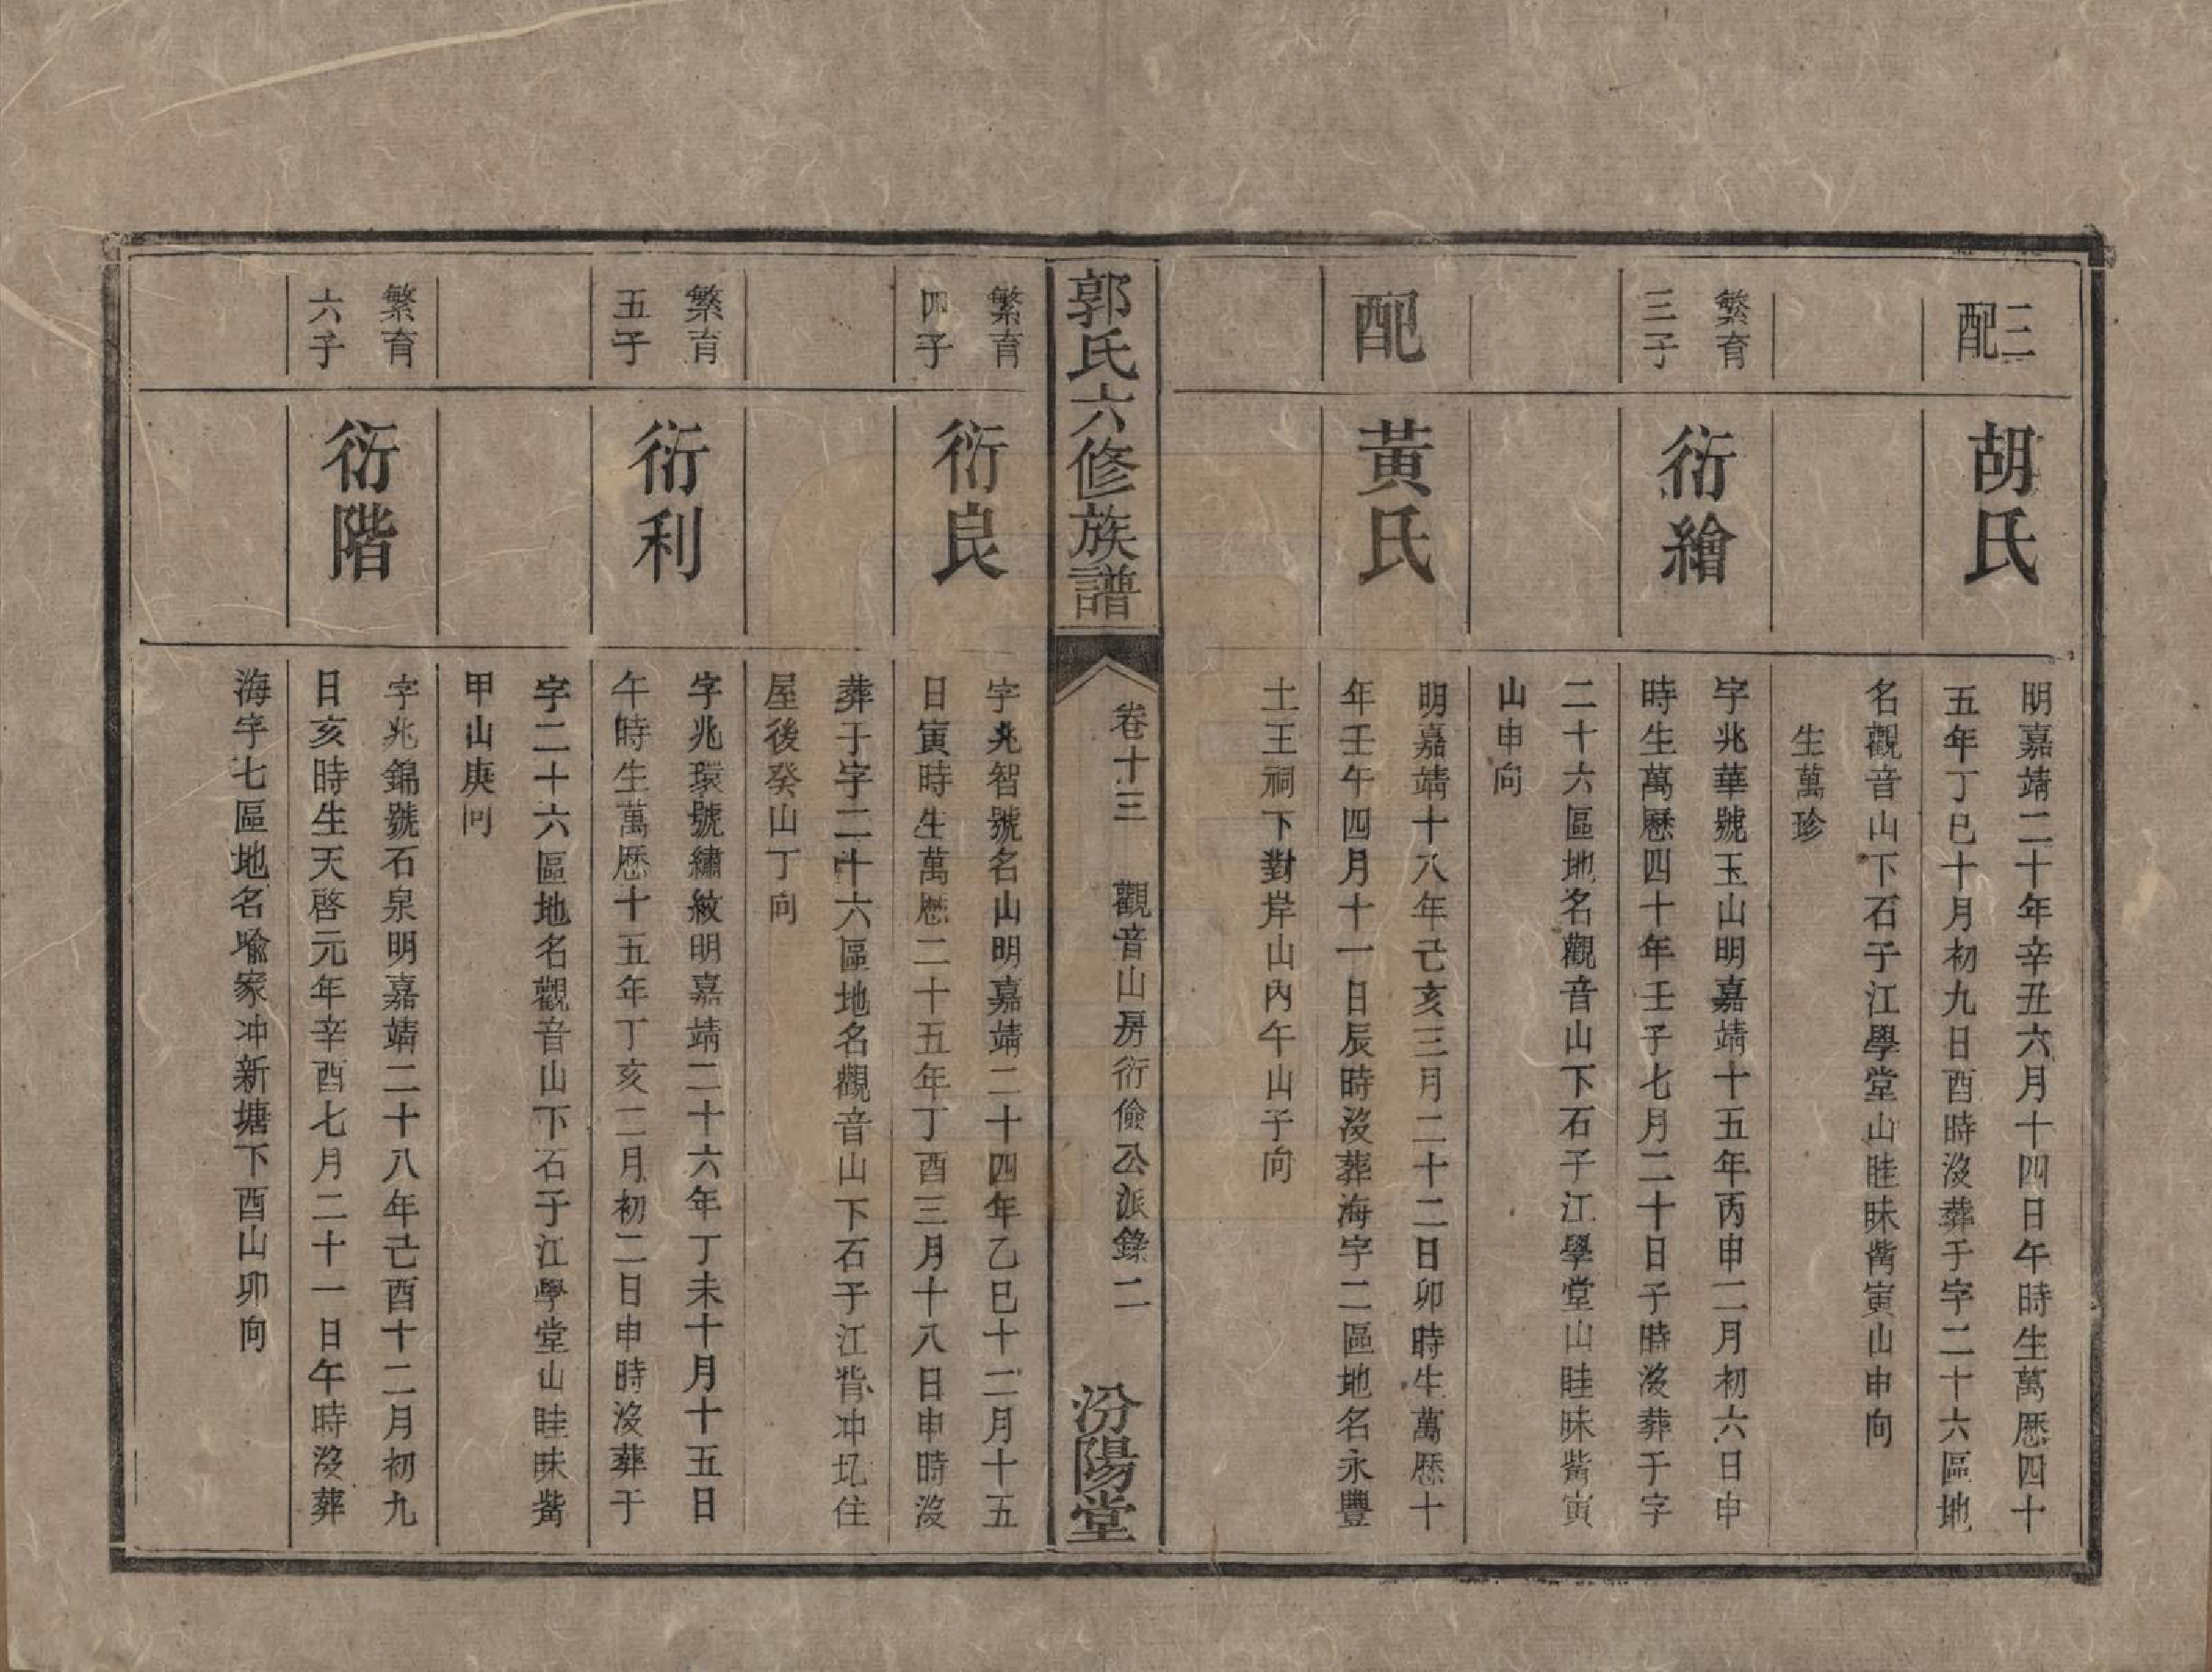 三配
胡氏
明嘉靖二十年辛丑六月十四日午時生萬歷四十
五年丁巳十月初九日酉時沒葬于字二十六區地
名觀音山下石子江學堂山眭昧觜寅山申向
生萬珍
繁育
三子
衍繪
字兆華號玉山明嘉靖十五年丙申二月初六日申
時生萬歷四十年壬子七月二十日子時沒葬于字
二十六區地名觀音山下石子江學堂山眭昧觜寅
山申向
配
黃氏
明嘉靖十八年己亥三月二十二日卯時生萬歷十
年壬午四月十一日辰時沒葬海字二區地名永豐
土王祠下對岸山內午山子向
郭氏六修族譜
卷十三
觀音山房衍儉公派錄
二
汾陽堂
繁育
四子
衍良
字兆智號名山明嘉靖二十四年乙巳十二月十五
日寅時生萬歷二十五年丁酉三月十八日申時沒
葬于字二十六區地名觀音山下石子江背冲圠住
屋後癸山丁向
繁育
五子
衍利
字兆環號繡紋明嘉靖二十六年丁未十月十五日
午時生萬歷十五年丁亥二月初二日申時沒葬于
字二十六區地名觀音山下石子江學堂山眭昧觜
甲山庚向
繁育
六子
衍階
字兆錦號石泉明嘉靖二十八年己酉十二月初九
日亥時生天啓元年辛酉七月二十一日午時沒葬
海字七區地名喩家冲新塘下酉山卯向